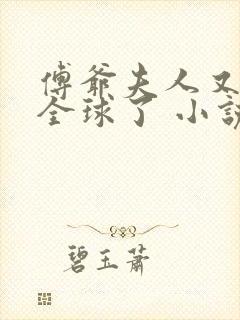 傅爺夫人又
全球了 小說
碧玉蕭